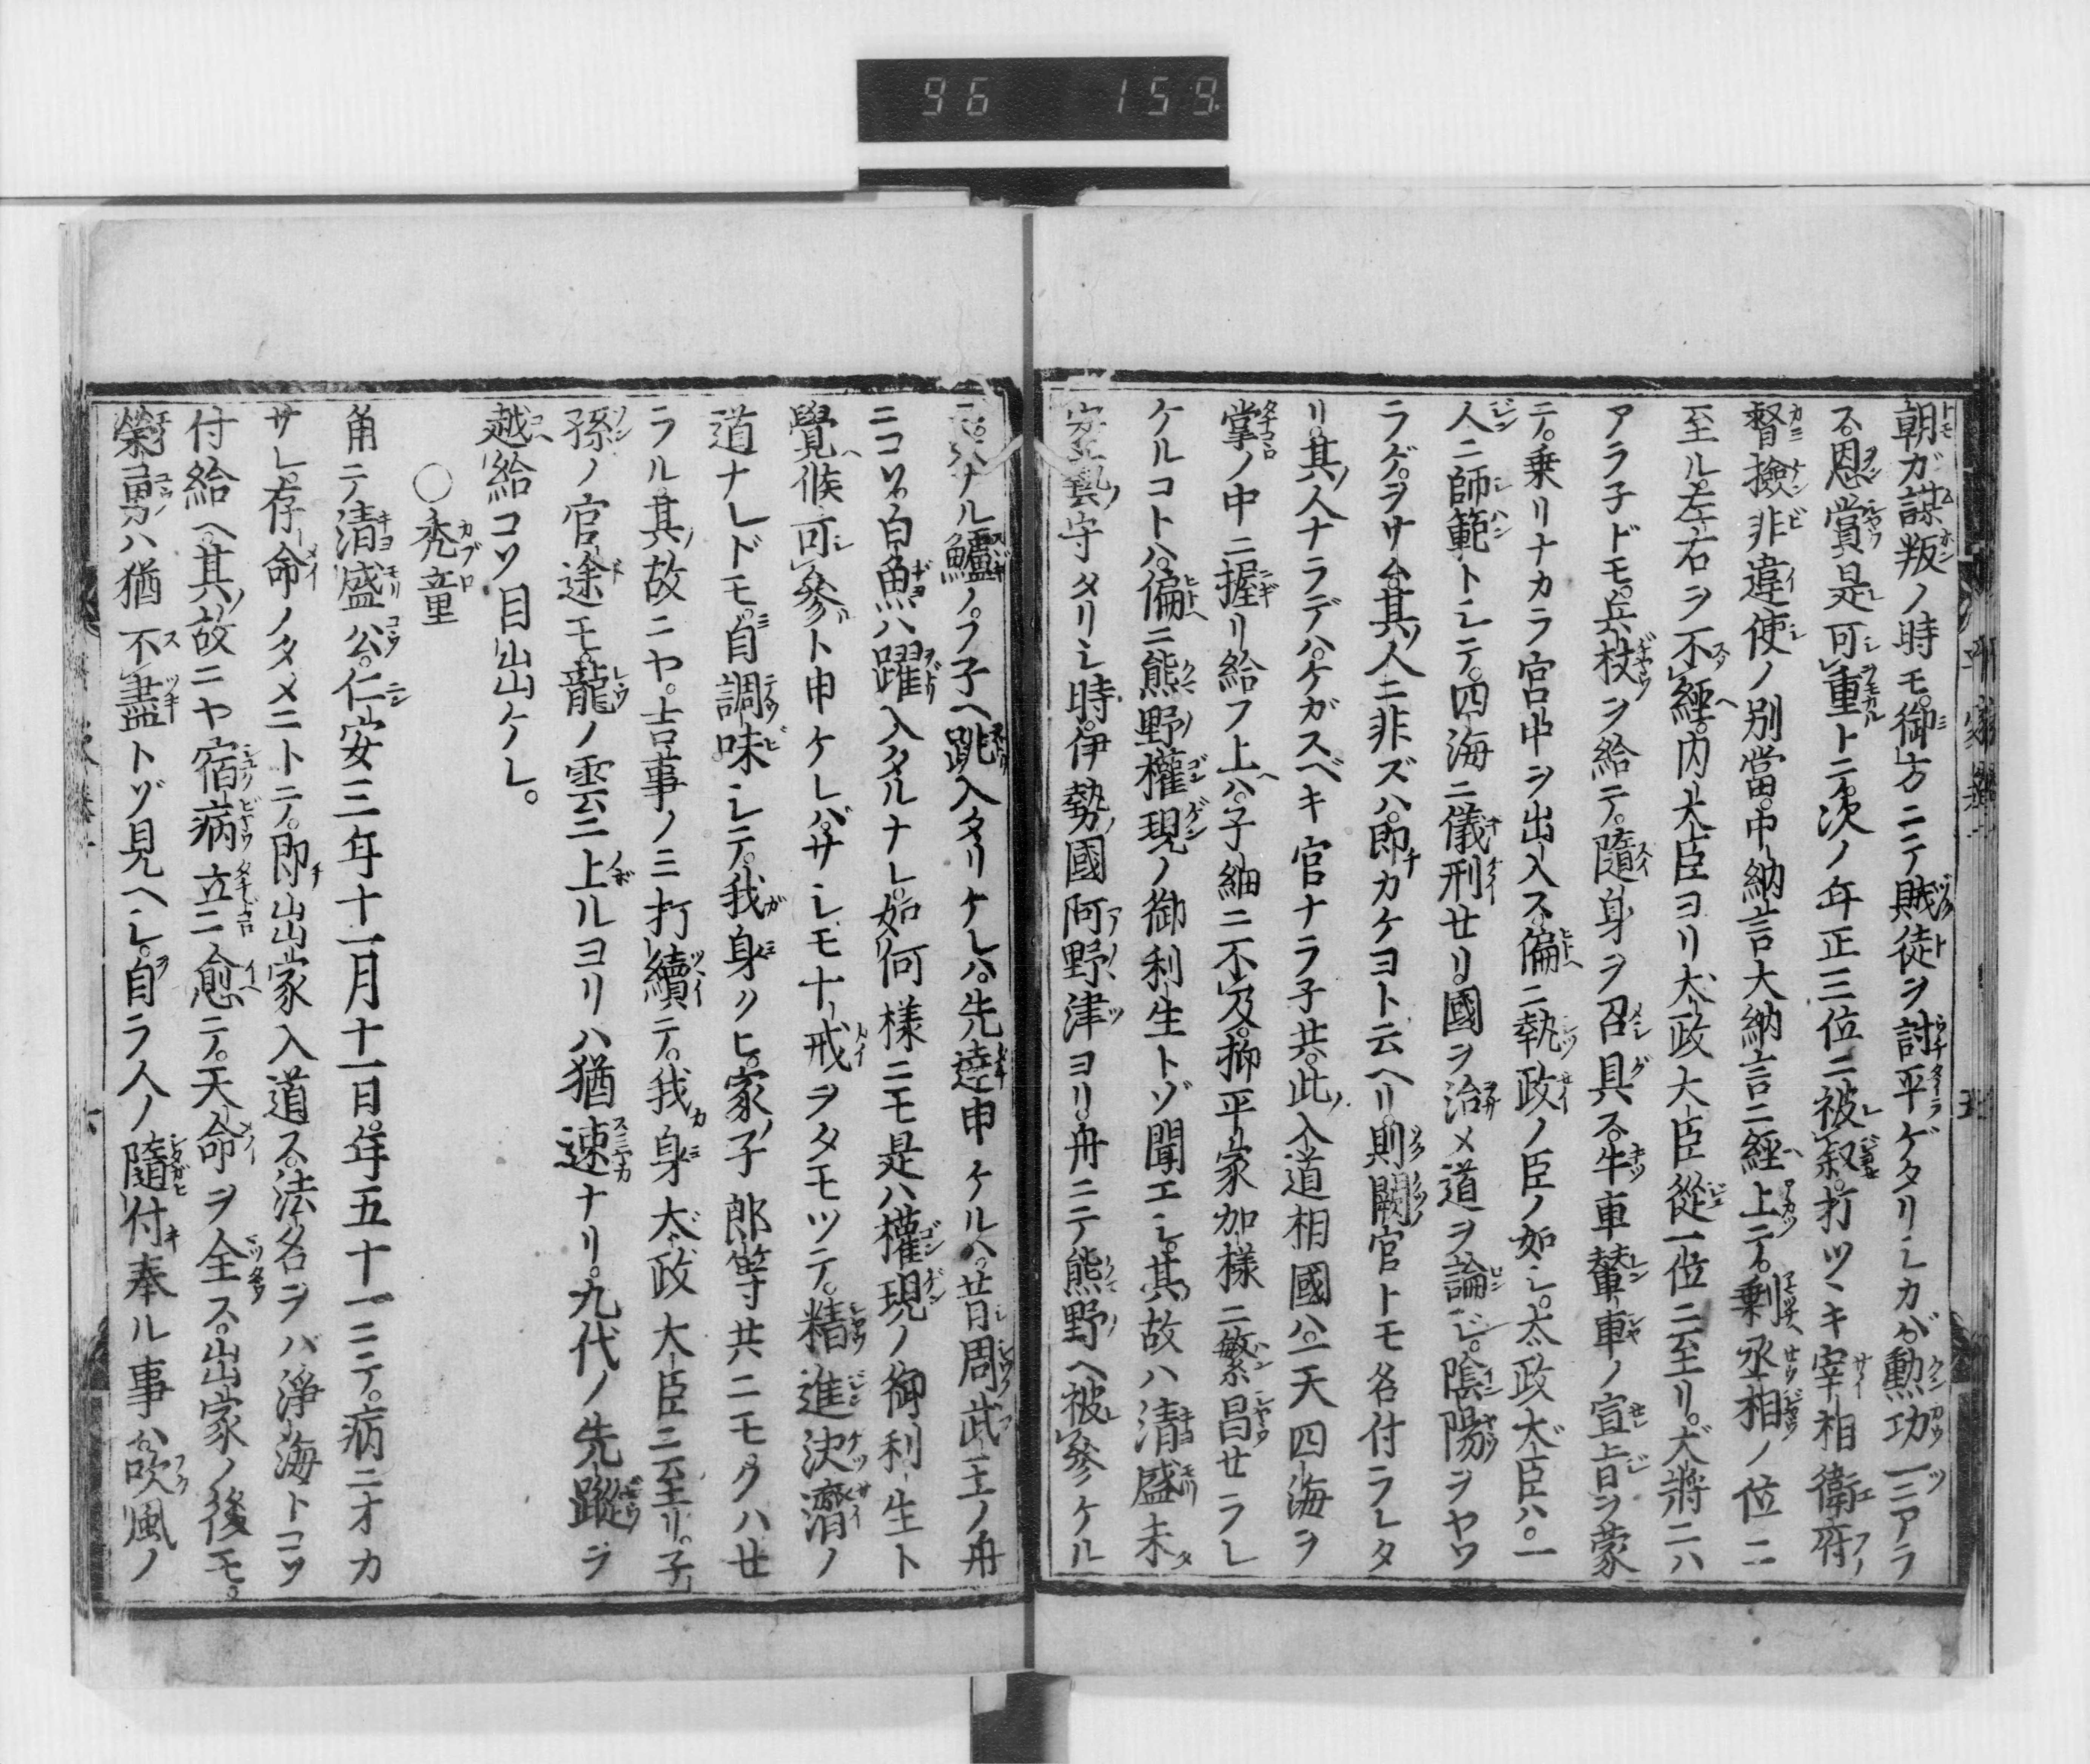 96 159
朝ガ謀叛ノ時モ。御方ニテ賊徒ヲ討平ゲタリシカバ。勲功一ニアラ
ズ。恩賞是可重トニ。次ノ年正三位ニ被叙。打ツヽキ宰相衛府ノ
督撿非違使ノ別當。中納言大納言ニ經上テ。剰丞相ノ位ニ
至ル。左右ヲ不經。内大臣ヨリ大政大臣從一位ニ至リ。大將ニハ
アラ子ドモ。兵杖ヲ給テ。隨身ヲ召具ス。牛車輦車ノ宣旨ヲ蒙
テ。乗リナカラ宮中ヲ出入ス。偏ニ執政ノ臣ノ如シ。太政大臣ハ。一
人ニ師範トシテ。四海ニ儀刑せリ。國ヲ治メ道ヲ論ジ。陰陽ヲヤワ
ラゲ。ヲサム。其人ニ非ズハ。即カケヨト云ヘリ。則闕官トモ名付ラレタ
リ。其人ナラデハ。ケガスベキ官ナラ子共。此入道相國ハ。一天四海ヲ
掌ノ中ニ握リ給フ上ハ。子細ニ不及。抑平家加様ニ繁昌せラレ
ケルコトハ。偏ニ熊野權現ノ御利生トゾ聞エシ。其故ハ清盛未
安藝守タリシ時。伊勢國阿野津ヨリ。舟ニテ熊野ヘ被參ケル
ニ。大ナル鱸ノ。フ子ヘ跳入タリケレハ。先達申ケルハ。昔周武王ノ舟
ニコソ。白魚ハ躍入タルナレ。如何様ニモ是ハ權現ノ御利生ト
覺候可參ト申ケレバ。サシモ十戒ヲタモツテ。精進決濟ノ
道ナレドモ。自調味シテ。我身クヒ。家子郎等共ニモクハせ
ラル。其故ニヤ。吉事ノミ打續テ。我身大政大臣ニ至リ。子
孫ノ官途モ。龍ノ雲ニ上ルヨリハ猶速ナリ。九代ノ先蹤ヲ
越給コソ目出ケレ。
〇禿童
角テ清盛公。仁安三年十一月十一日。年五十一ニテ。病ニオカ
サレ。存命ノタメニトテ。即出家入道ス。法名ヲバ淨海トコソ
付給ヘ。其故ニヤ。宿病立ニ愈テ。天命ヲ全ス。出家ノ後モ。
榮耀ハ猶不盡トゾ見ヘシ。自ラ人ノ隨付奉ル事ハ。吹風ノ